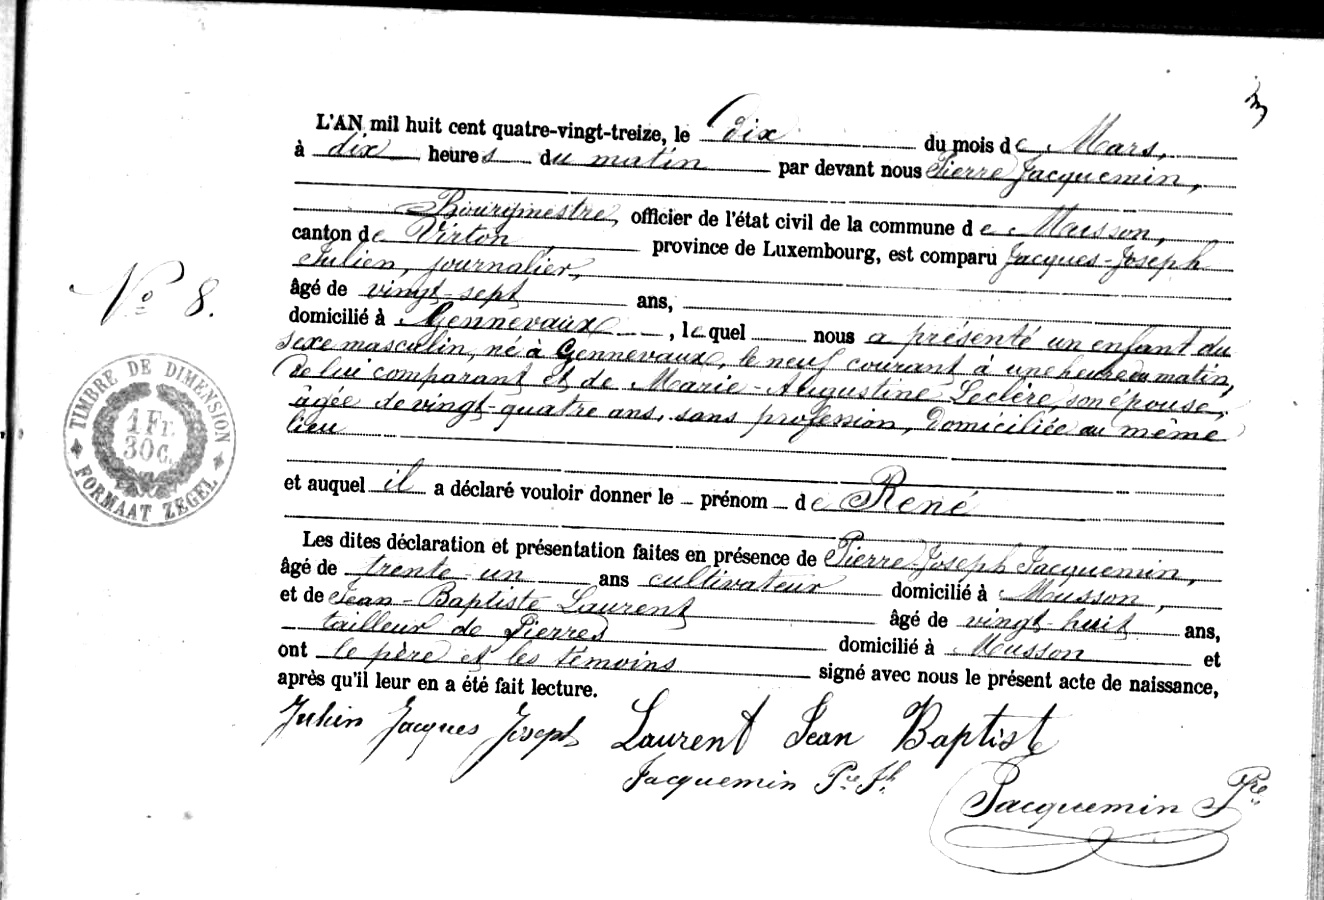 3
L'AN mil huit cent quatre-vingt-treize, le dix du mois de Mars,
à dix heures du matin par devant nous Pierre Jacquemin,
Bourgmestre, officier de l'état civil de la commune de Musson,
canton de Virton, province de Luxembourg, est comparu Jacques-Joseph
Julien, journalier,
âgé de vingt-sept ans,
domicilié à Gennevaux, lequel nous a présenté un enfant du
sexe masculin, né à Gennevaux, le neuf courant à une heure du matin,
de lui comparant et de Marie-Augustine Leclère, son épouse,
âgée de vingt-quatre ans, sans profession, domiciliée au même
lieu
et auquel il a déclaré vouloir donner le prénom de René
Les dites déclaration et présentation faites en présence de Pierre-Joseph Jacquemin,
âgé de trente un ans cultivateur domicilié à Musson,
et de Jean-Baptiste Laurent âgé de vingt-huit ans,
tailleur de Pierres domicilié à Musson et
ont le père et les témoins signé avec nous le présent acte de naissance,
après qu'il leur en a été fait lecture.
No 8.
TIMBRE DE DIMENSION
1 Fr.
30 C.
FORMAAT ZEGEL
Julien Jacques Joseph Laurent Jean Baptiste
Jacquemin Pre Jh
Jacquemin Pre